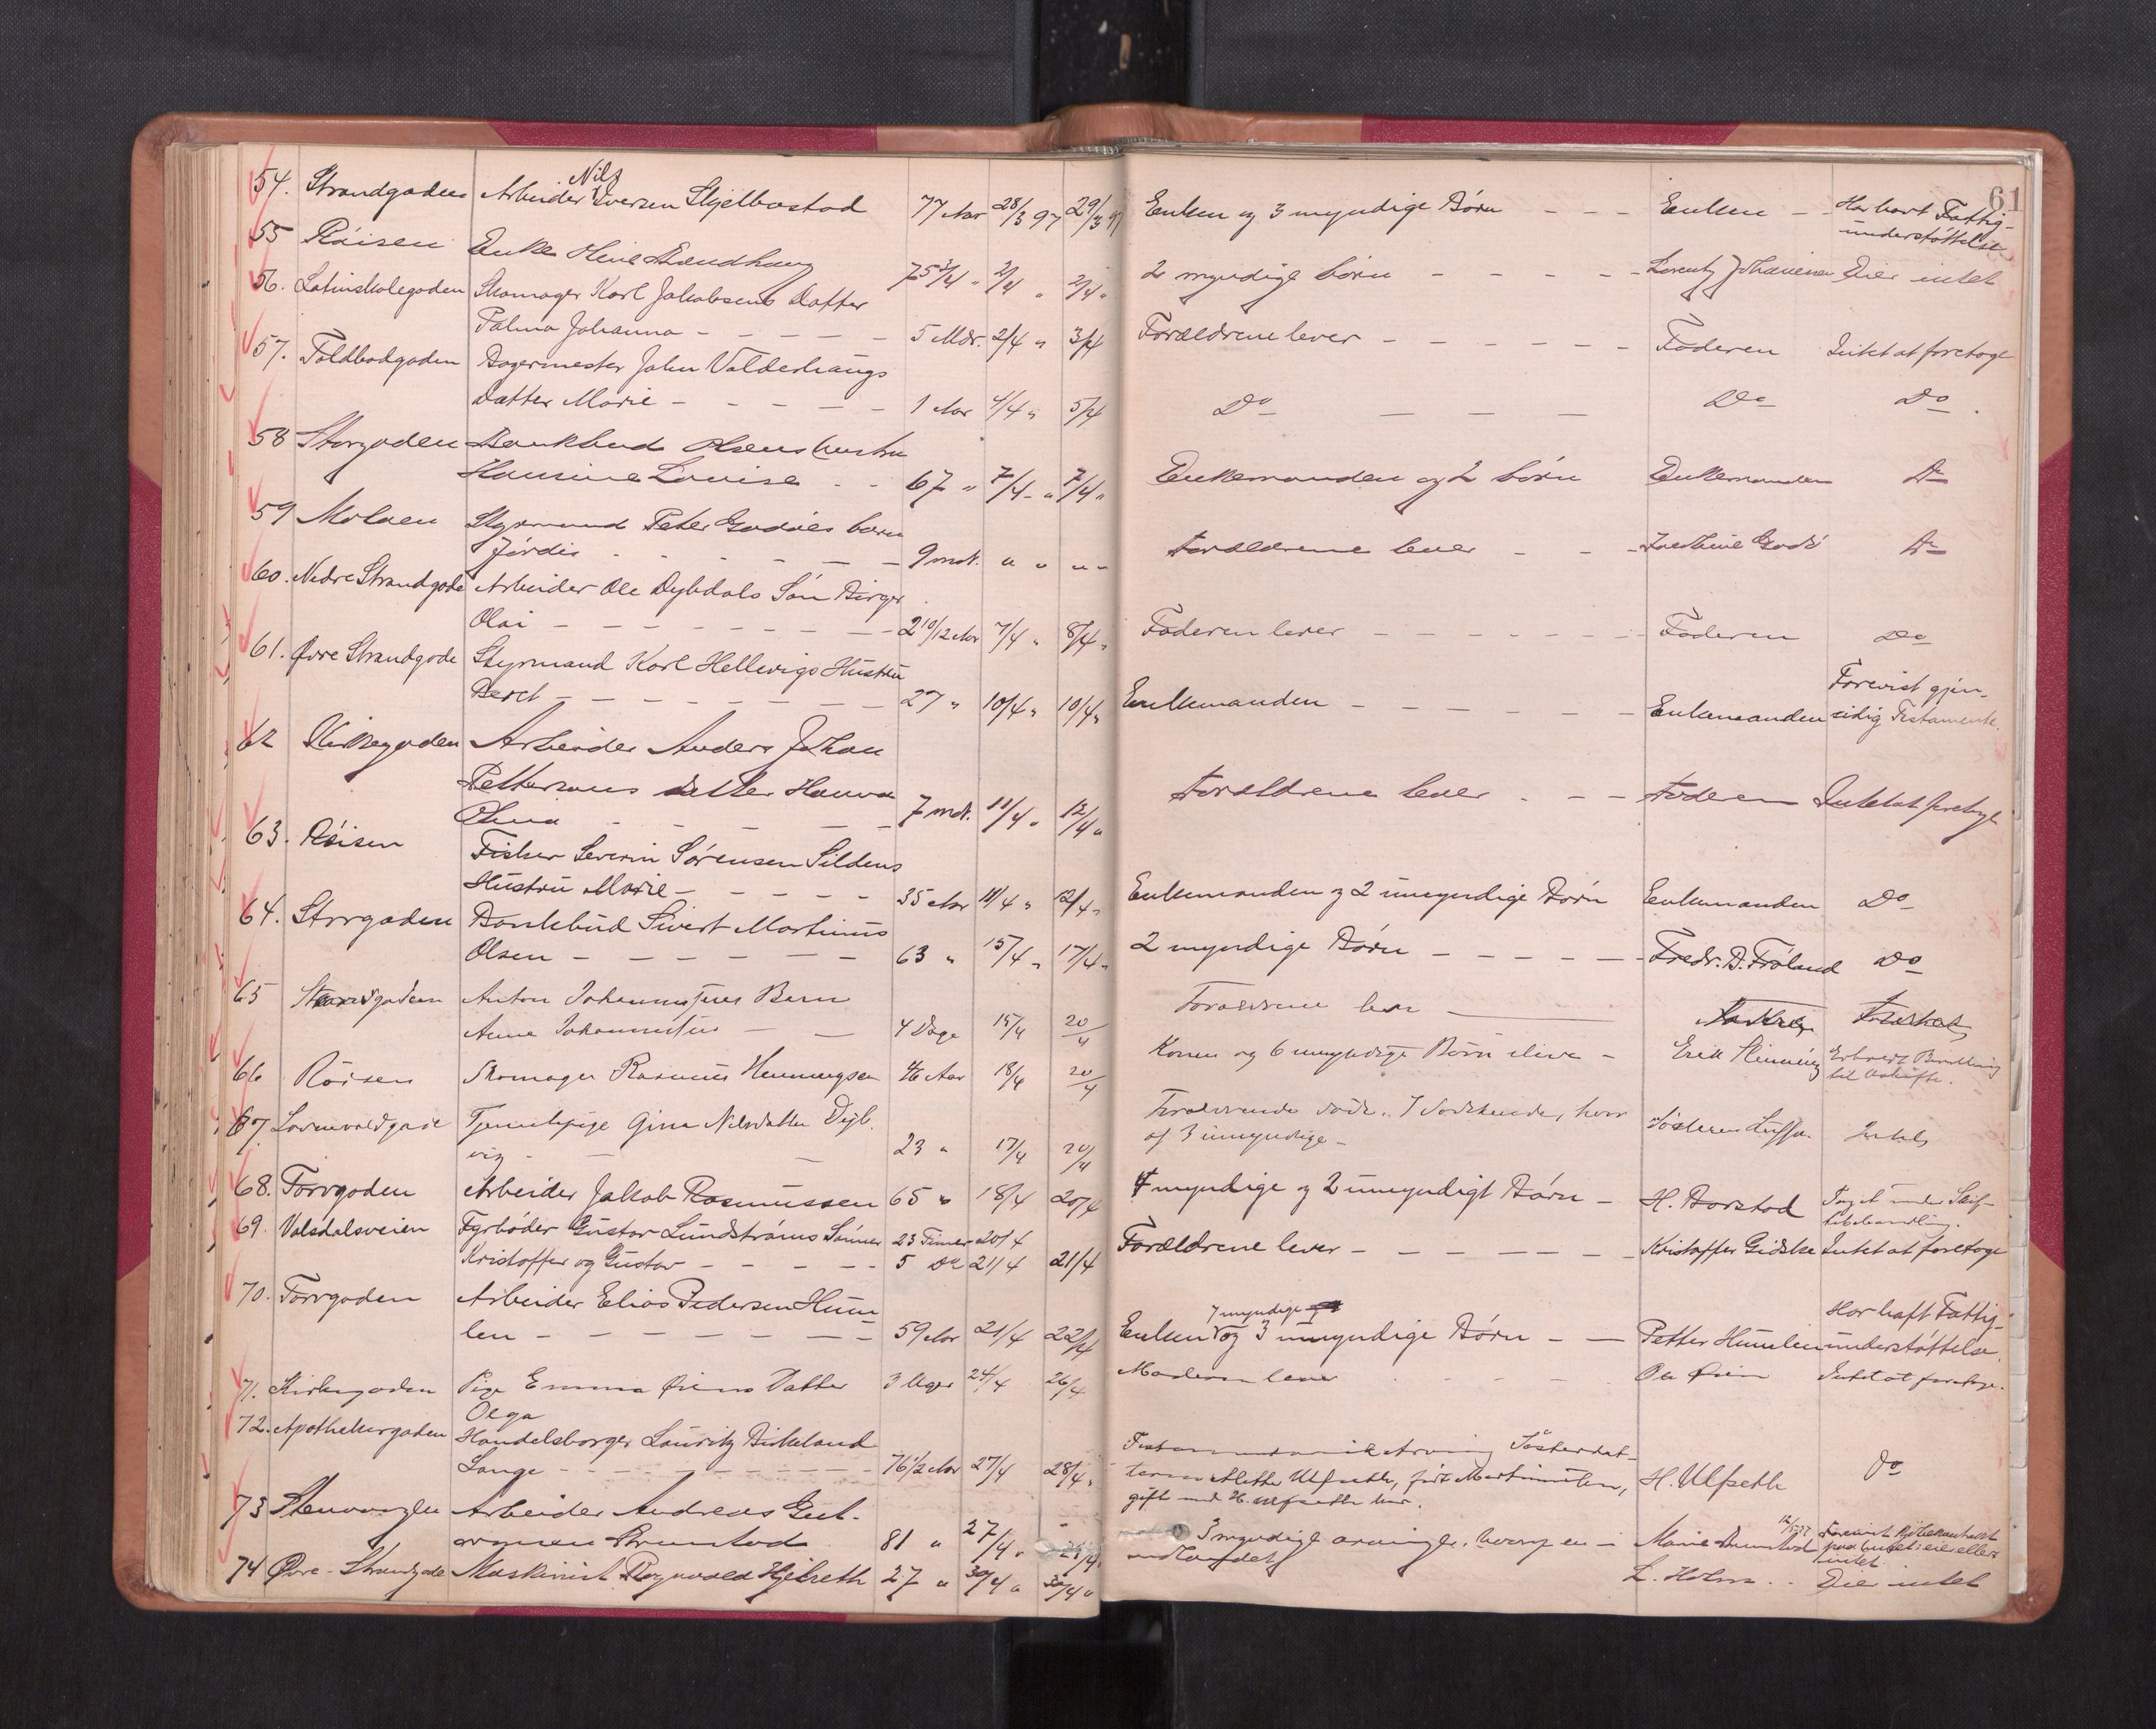 61
54. Strandgaden Arbeider Nils Iversen Skjelbostad 77 Aar 28/3 97 29/3 97 Enken og 3 myndige Børn - - - Enken - - Har havt Fattig-
understøttelse
55 Röisen Enke Oline 75 3/4 " 2/4 " 2/4 " 2 myndige børn - - - - Lorentz Johansen Eier intet
56. Latinskolegaden Skomager Karl Jakobsens Datter
Palma Johanna - - - - 5 Mdr. 2/4 " 3/4 Forældrene lever - - - - - - Faderen Intet at foretage
57. Toldbodgaden Bagermester John Valderhaugs
Datter Marie - - - - - 1 Aar 4/4 " 5/4 Do - - - Do Do.
58 Storgaden Bankbud Olsens hustru
Hansine Lovise - - 67 " 7/4 - " 7/4 " Enkemanden og 2 børn Enkemanden Do
59 Molaen Styrmand Peter Godøes barn
Jørdis - - - - - 9 mdr. " " " " Forældrene lever - - - Godö Do
60. Nedre Strandgade Arbeider Ole Dybdals Søn Birger
Olai - - - - - - - - 2 10/12 Aar 7/4 " 8/4 " Faderen lever - - - - - - - Faderen Do
61. Øvre Strandgade Styrmand Karl Hellevigs Hustru
Beret - - - - - - - 27 " 10/4 " 10/4 " Enkemanden - - - - - - Enkemanden Forevist gjen-
sidig Testamente.
62 Kirkegaden Arbeider Anders Johan
Pettersens datter Hanna
Olina - - - - - 7 mdr. 11/4 " 12/4 " Forældrene lever - - - Faderen Intet at foretage
63. Röisen Fisker Severin Sørensen Sildens
Hustru Marie - - - - - 35 Aar 11/4 " 12/4 " Enkemanden og 2 umyndige Børn Enkemanden Do
64. Storgaden Bankbud Sivert Martinus
Olsen - - - - - - 63 " 15/4 " 17/4 " 2 myndige Børn - - - - - Fredr. D. Fröland Do
65 Anton Johannessens Barn
Anna Johannessen - - 4 Dage 15/4 20/4 Forældrene lever
66 Röisen Skomager Rasmus Henningsen 46 Aar 18/4 20/4 Konen og 6 umyndige Børn ilive - Erik
til Udskifte.
67 Lorenvoldgade Tjenestepige Gina Nilsdatter Dyb
vig - - - 23 " 17/4 20/4 Forældrende døde. 7 Sødskende, hvor
af 3 umyndige - Søsteren Intet
68. Torvgaden Arbeider Jakob Rasmussen 65 " 18/4 20/4 4 myndige og 2 umyndigt Børn - H. Borstad Taget under Skif-
tebehandling.
69. Volsdalsveien Fyrbøder Gustav Lundströms Sönner 23 Timer 20/4
Kristoffer og Gustav - - - - - 5 Do 21/4 21/4 Forældrene lever - - - - - - Kristoffer Gidske Intet at foretage
70. Torvgaden Arbeider Elias Pedersen Hum
len - - - - - - - 59 Aar 21/4 22/4 Enken 7 myndige og 3 umyndige Børn - - Petter Humlen Har haft Fattig-
understøttelse.
71. Kirkegaden Pige Emma Øiens Datter
Olga 3 Uger 24/4 26/4 Moderen lever - - - - Ole Øien Intet at foretage.
72. Apothekergaden Handelsborger Lauritz Birkeland
Lange - - - - - - - - 76 1/2 Aar 27/4 28/4 " Testamentarisk Arving Søsterdat-
teren Ulfseth, født Martinussen,
gift med H. Ulfseth her. H. Ulfseth Do
73 Stenvaagen Arbeider Andreas Gut-
ormsen Brunstad 81 " 27/4 " 29/4 " 3 myndige arvinger, hvoraf en - Marie Brunstad
intet
74 Øvre-Strandgade Maskinist Ragnvald Hjelseth 27 " 30/4 " 30/4 " L. Holm . . Eier intet